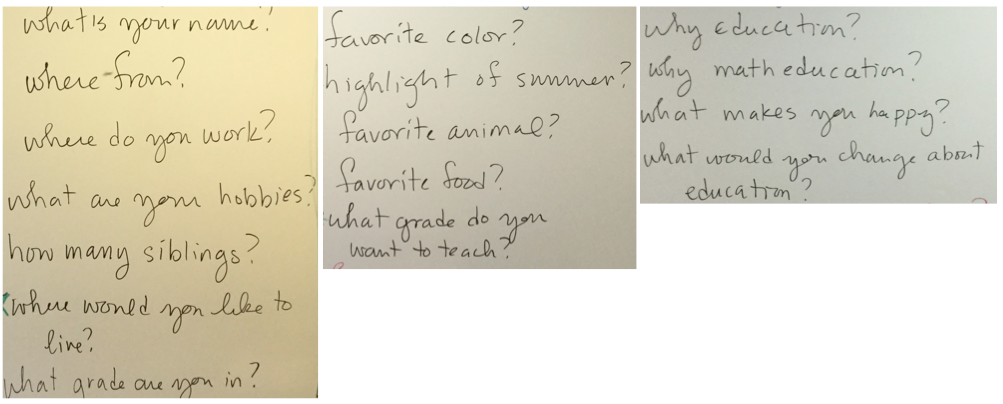 what is your name?
where from?
where do you work?
what are your hobbies?
how many siblings?
where would you like to
live?
what grade are you in?
favorite color?
highlight of summer?
favorite animal?
favorite food?
what grade do you
want to teach?
Why education?
why math education?
what makes you happy?
what would you change about
education?